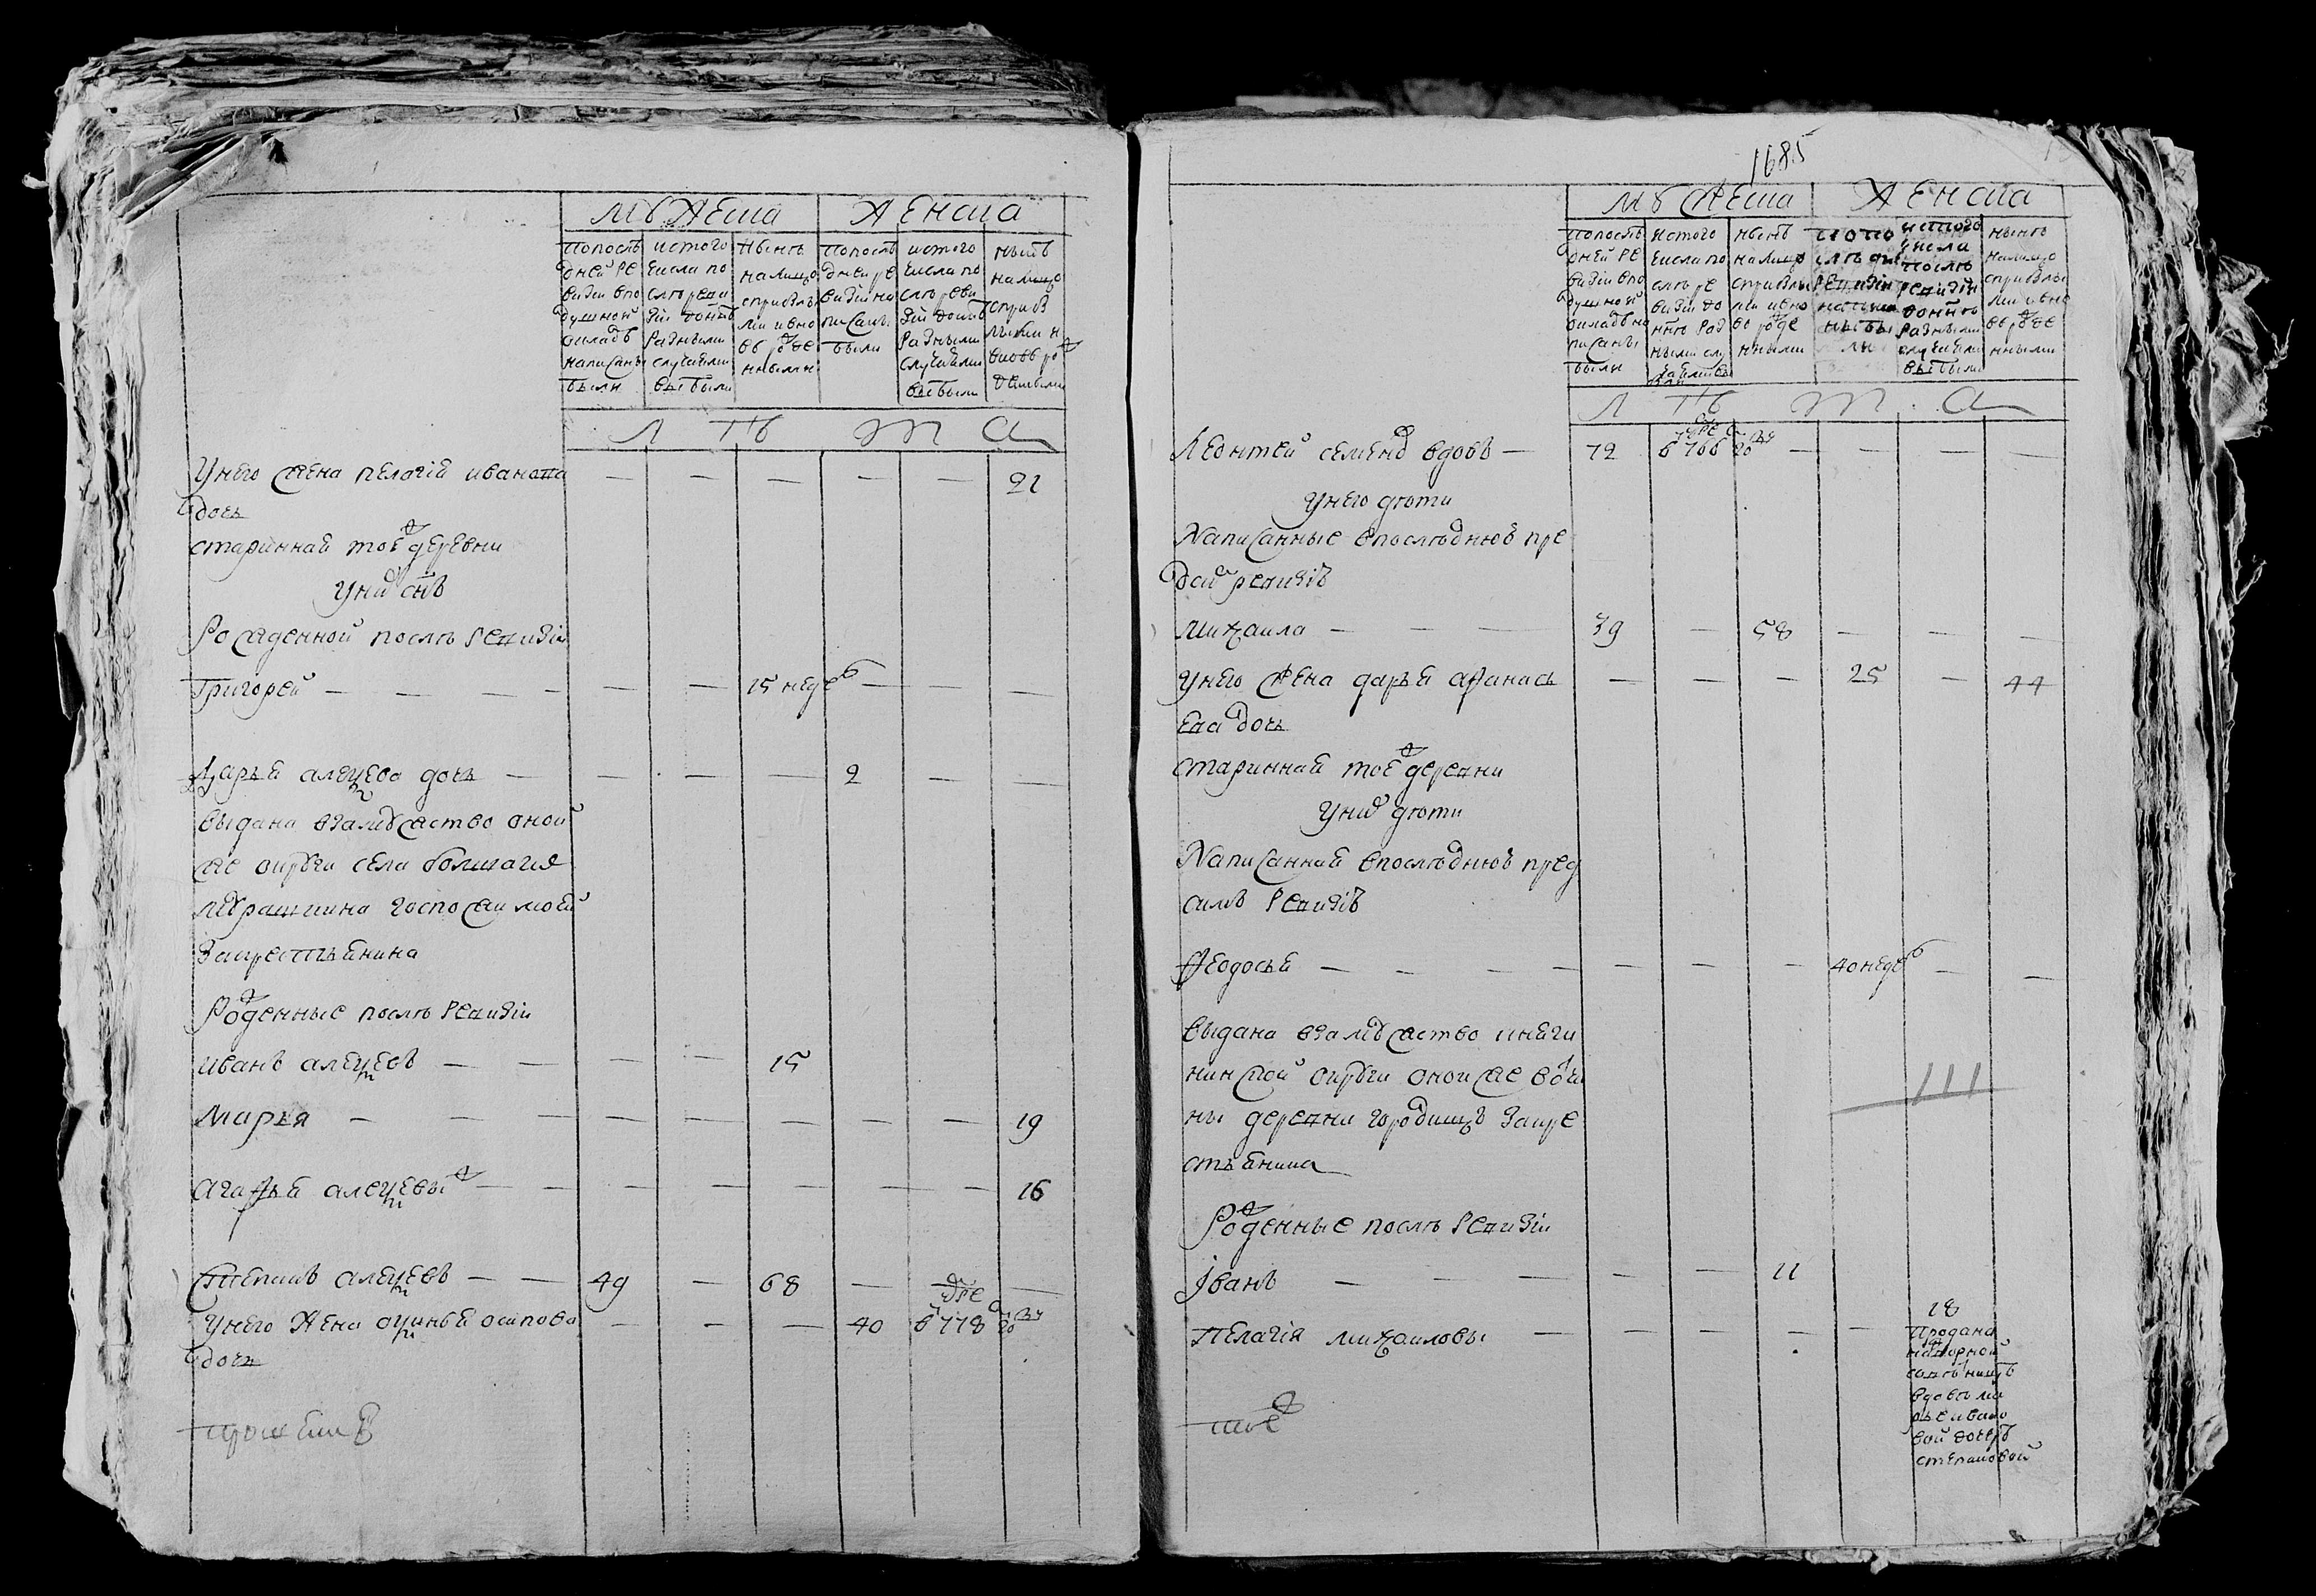 мужеска
женска
попослѣ
дней ре
визіи впо
душной
окладъ
написаны
были
истого
числа по
слѣ реви
зіи донынѣ
разными
случаями
выбыли
нынѣ
налицо
сприбылы
ми ивно
въ рожде
нными
попослѣ
дней ре
визіи на
писаны
были
истого
числа по
слѣ реви
зіи донынѣ
разными
случаями
выбыли
нынѣ
налицо
сприбы
лыми и
вновь ро
жденными
Л ѣ т а
Унего жена пелагія иванова 21
дочь
стариннай тоеж деревни
Уних снъ
Рожденной послѣ ревизіи
Григорей 15 недел
Дарья алексеева дочь 2
выдана взамужество оной
же округи села большагя
мурашкина господжи моей
закрестьянина
Рожденные послѣ ревизіи
иванъ алексеевъ 15
Марья 19
агафья алексеевы 16
Степанъ алексеевъ 49 68
Унего жена аксинья осипова 40 в 778
дочь
1685
мужеска
женска
попослѣ
дней ре
визіи впо
душной
окладъ на
писаны
были
истого
числа по
слѣ ре
визіи до
нынѣ раз
ными слу
чаями вы
были
нынѣ
налицо
сприбылы
ми ивно
во рожде
нными
истого
числа
послѣ
ревизіи
донынѣ
разными
случаями
выбыли
нынѣ
налицо
сприбылы
ми ивно
въ рожде
нными
Л ѣ т а
Леонтей семенов вдовъ 72 в 766
унего дѣти
Написанные впослѣднюю пре
дсим ревизію
михаила 39 58
унего жена дарья афанась 25 44
ева дочь
стариннай тоеж деревни
Уних дѣти
Написанная впослѣднюю пред
симъ ревизію
Феодосья 40 недел
выдана взамужество княги
нинской округи оной же вотчи
ны деревни городищъ закре
стьянина
111
Рожденные послѣ ревизіи
Iванъ 11
Пелагія михаиловы 18
продана
вдовѣ ма
рье ивано
вой дочерѣ
степановой